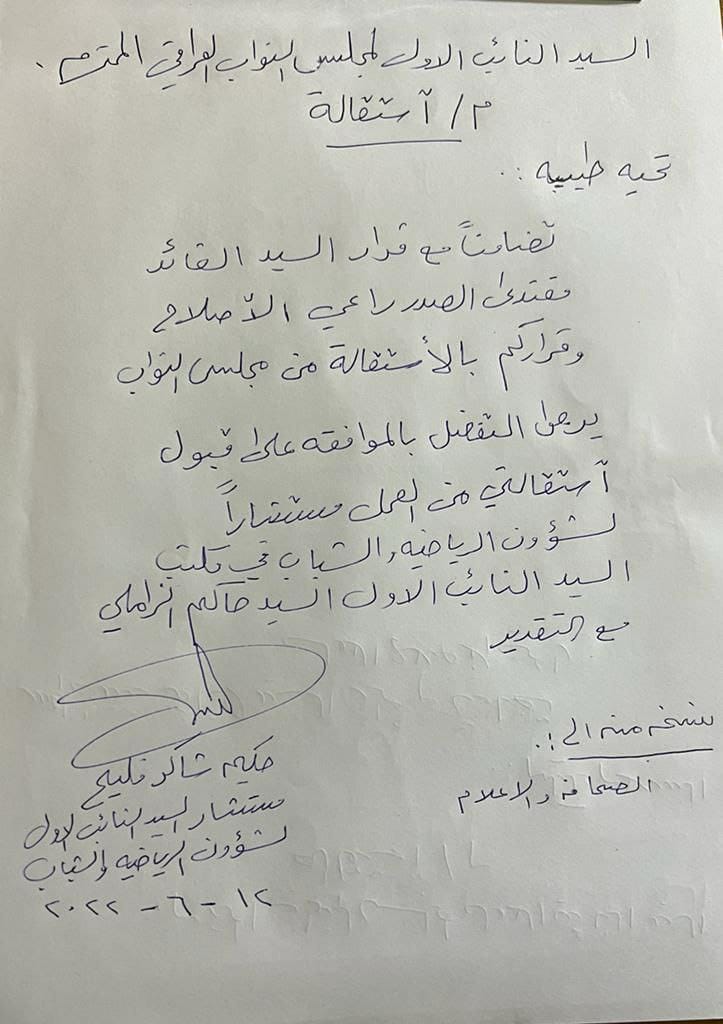 السيد النائب الاول لمجلس النواب العراقي المحترم .
م / آستقالة
تحيه طيبه :.
تضامناً مع قرار السيد القائد
مقتدى الصدر راعي الأصلاح
وقراركم بالأستقالة من مجلس النواب
يرجى التفضل بالموافقه على قبول
آستقالتي من العمل مستشاراً
لشؤون الرياضه والشباب في مكتب
السيد النائب الاول السيد حاكم الزاملي
مع التقدير
حكيم شاكر فليح
مستشار السيد النائب الاول
لشؤون الرياضيه والشباب
١٢ - ٦ - ٢٠٢٢
نسخه منه الى :.
الصحافه والاعلام